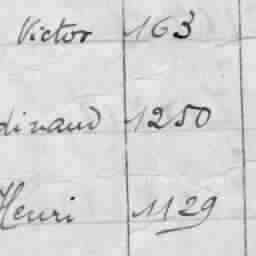 Victor 163
dinand 1250
Henri 1129